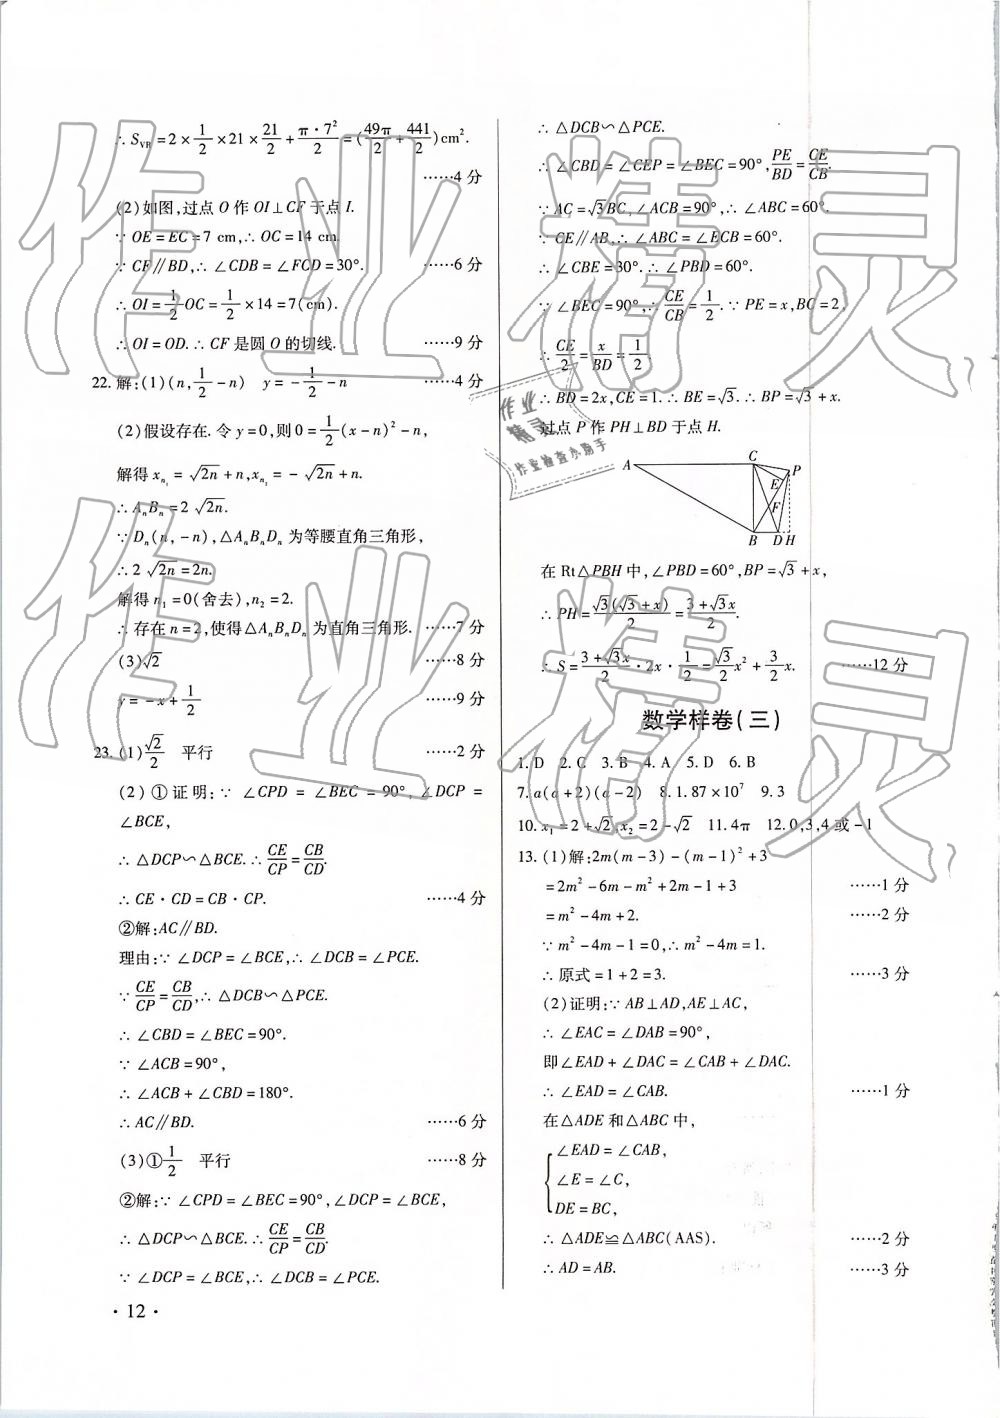 ∴ S阴 = 2 × 1/2 × 21 × 21/2 + π·7²/2 = (49π/2 + 441/2) cm².
······4 分
(2)如图,过点 O 作 OI⊥CF 于点 I.
∵ OE = EC = 7 cm,∴ OC = 14 cm.
∵ CF∥BD,∴ ∠CDB = ∠FCD = 30°. ······6 分
∴ OI = 1/2 OC = 1/2 × 14 = 7(cm).
∴ OI = OD. ∴ CF 是圆 O 的切线. ······9 分
22. 解:(1)(n, 1/2 - n) y = - 1/2 - n ······4 分
(2)假设存在. 令 y = 0,则 0 = 1/2 (x - n)² - n,
解得 xn₁ = √2n + n, xn₁ = - √2n + n.
∴ AnBn = 2 √2n.
∵ Dn(n, -n),△AnBnDn 为等腰直角三角形,
∴ 2 √2n = 2n.
解得 n₁ = 0(舍去),n₂ = 2.
∴ 存在 n = 2,使得△AnBnDn 为直角三角形. ······7 分
(3)√2 ······8 分
y = -x + 1/2 ······9 分
23. (1) √2/2 平行 ······2 分
(2) ①证明:∵ ∠CPD = ∠BEC = 90°, ∠DCP =
∠BCE,
∴ △DCP∽△BCE. ∴ CE/CP = CB/CD.
∴ CE·CD = CB·CP. ······4 分
②解:AC∥BD.
理由:∵ ∠DCP = ∠BCE,∴ ∠DCB = ∠PCE.
∵ CE/CP = CB/CD, ∴ △DCB∽△PCE.
∴ ∠CBD = ∠BEC = 90°.
∵ ∠ACB = 90°,
∴ ∠ACB + ∠CBD = 180°.
∴ AC∥BD. ······6 分
(3)① 1/2 平行 ······8 分
②解:∵ ∠CPD = ∠BEC = 90°,∠DCP = ∠BCE,
∴ △DCP∽△BCE. ∴ CE/CP = CB/CD.
∵ ∠DCP = ∠BCE,∴ ∠DCB = ∠PCE.
· 12 ·
∴ △DCB∽△PCE.
∴ ∠CBD = ∠CEP = ∠BEC = 90°, PE/BD = CE/CB.
∵ AC = √3BC,∠ACB = 90°,∴ ∠ABC = 60°.
∵ CE∥AB,∴ ∠ABC = ∠ECB = 60°.
∴ ∠CBE = 30°. ∴ ∠PBD = 60°.
∵ ∠BEC = 90°,∴ CE/CB = 1/2. ∵ PE = x,BC = 2,
∴ CE/2 = x/BD = 1/2.
∴ BD = 2x,CE = 1. ∴ BE = √3. ∴ BP = √3 + x.
过点 P 作 PH⊥BD 于点 H.
A C P E F B D H
在 Rt△PBH 中,∠PBD = 60°,BP = √3 + x,
∴ PH = √3(√3 + x)/2 = 3 + √3x/2.
∴ S = 3 + √3x/2 · 2x · 1/2 = √3/2 x² + 3/2 x. ······12 分
数学样卷(三)
1. D 2. C 3. B 4. A 5. D 6. B
7. a(a + 2)(a - 2) 8. 1.87 × 10⁷ 9. 3
10. x₁ = 2 + √2, x₂ = 2 - √2 11. 4π 12. 0,3,4 或 -1
13. (1)解:2m(m - 3) - (m - 1)² + 3
= 2m² - 6m - m² + 2m - 1 + 3 ······1 分
= m² - 4m + 2. ······2 分
∵ m² - 4m - 1 = 0,∴ m² - 4m = 1.
∴ 原式 = 1 + 2 = 3. ······3 分
(2)证明:∵ AB⊥AD,AE⊥AC,
∴ ∠EAC = ∠DAB = 90°,
即∠EAD + ∠DAC = ∠CAB + ∠DAC.
∴ ∠EAD = ∠CAB. ······1 分
在△ADE 和△ABC 中,
∠EAD = ∠CAB,
∠E = ∠C,
DE = BC,
∴ △ADE≌△ABC(AAS). ······2 分
∴ AD = AB. ······3 分
作业精灵
作业精灵
作业精灵
作业检查小助手